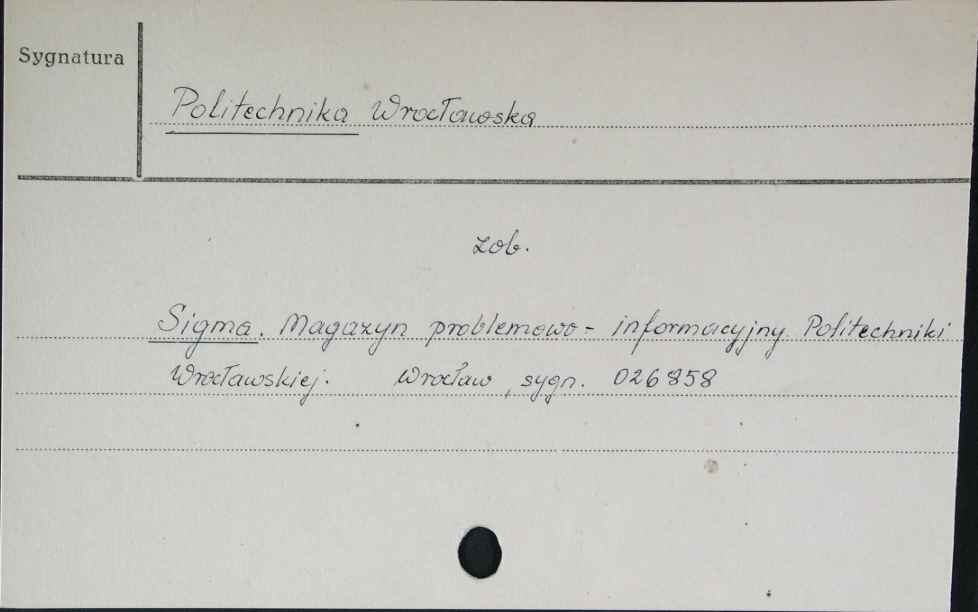 Sygnatura
Politechnika Wrocławska
zob.
Sigma. Magazyn problemowo - informacyjny. Politechniki
Wrocławskiej. Wrocław, sygn. 026858